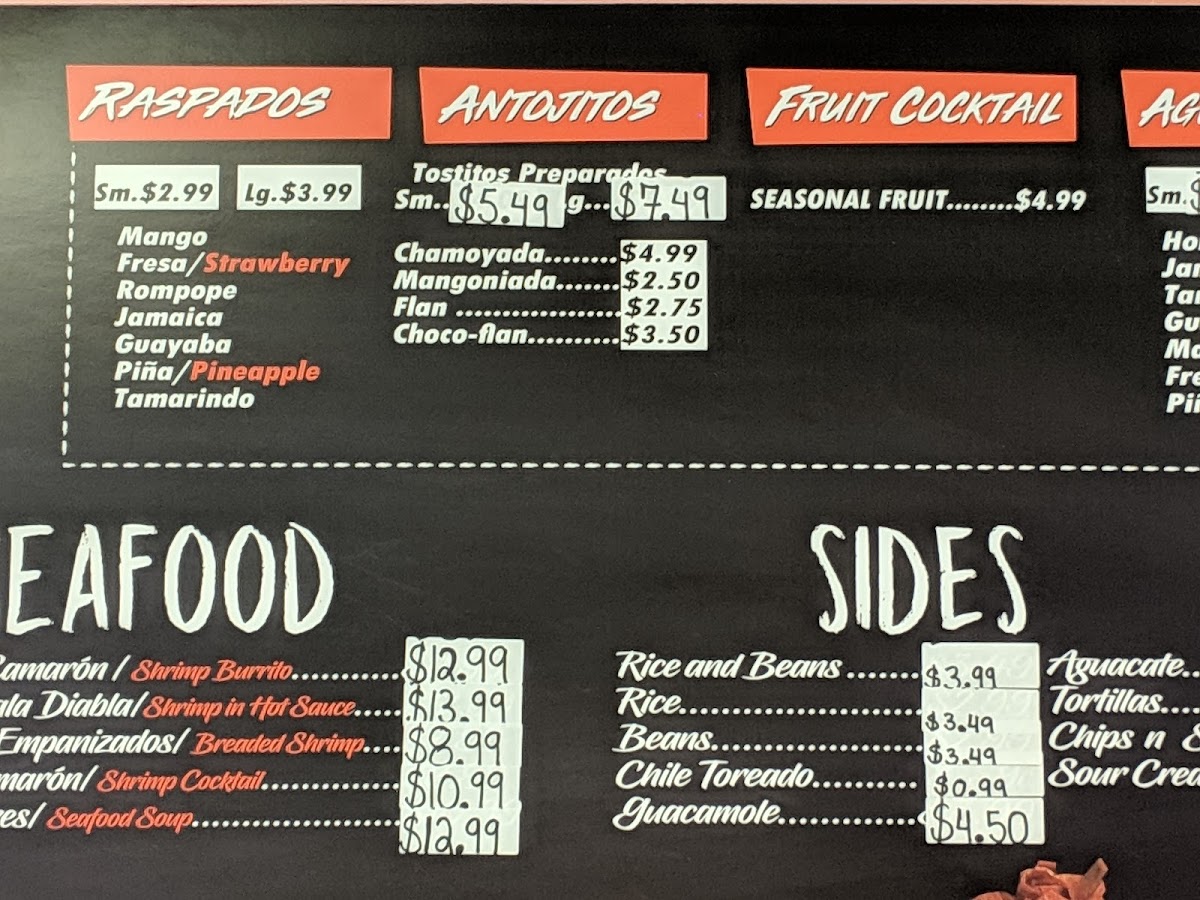 RASPADOS
Sm.$2.99 Lg.$3.99
Mango
Fresa/Strawberry
Rompope
Jamaica
Guayaba
Piña/Pineapple
Tamarindo
ANTOJITOS
Tostitos Preparados
Sm..$5.49 g...$7.49
Chamoyada........$4.99
Mangoniada.......$2.50
Flan ..................$2.75
Choco-flan..........$3.50
FRUIT COCKTAIL
SEASONAL FRUIT.........$4.99
AG
Sm.
Ho
Jam
Ta
Gu
Ma
Fre
Piñ
EAFOOD
amarón / Shrimp Burrito............$12.99
ala Diabla/Shrimp in Hot Sauce.....$13.99
Empanizados/ Breaded Shrimp....$8.99
marón/ Shrimp Cocktail...............$10.99
es/ Seafood Soup.......................$12.99
SIDES
Rice and Beans ........$3.99
Rice..........................$3.49
Beans.......................$3.49
Chile Toreado............$0.99
Guacamole................$4.50
Aguacate..
Tortillas....
Chips n
Sour Crea